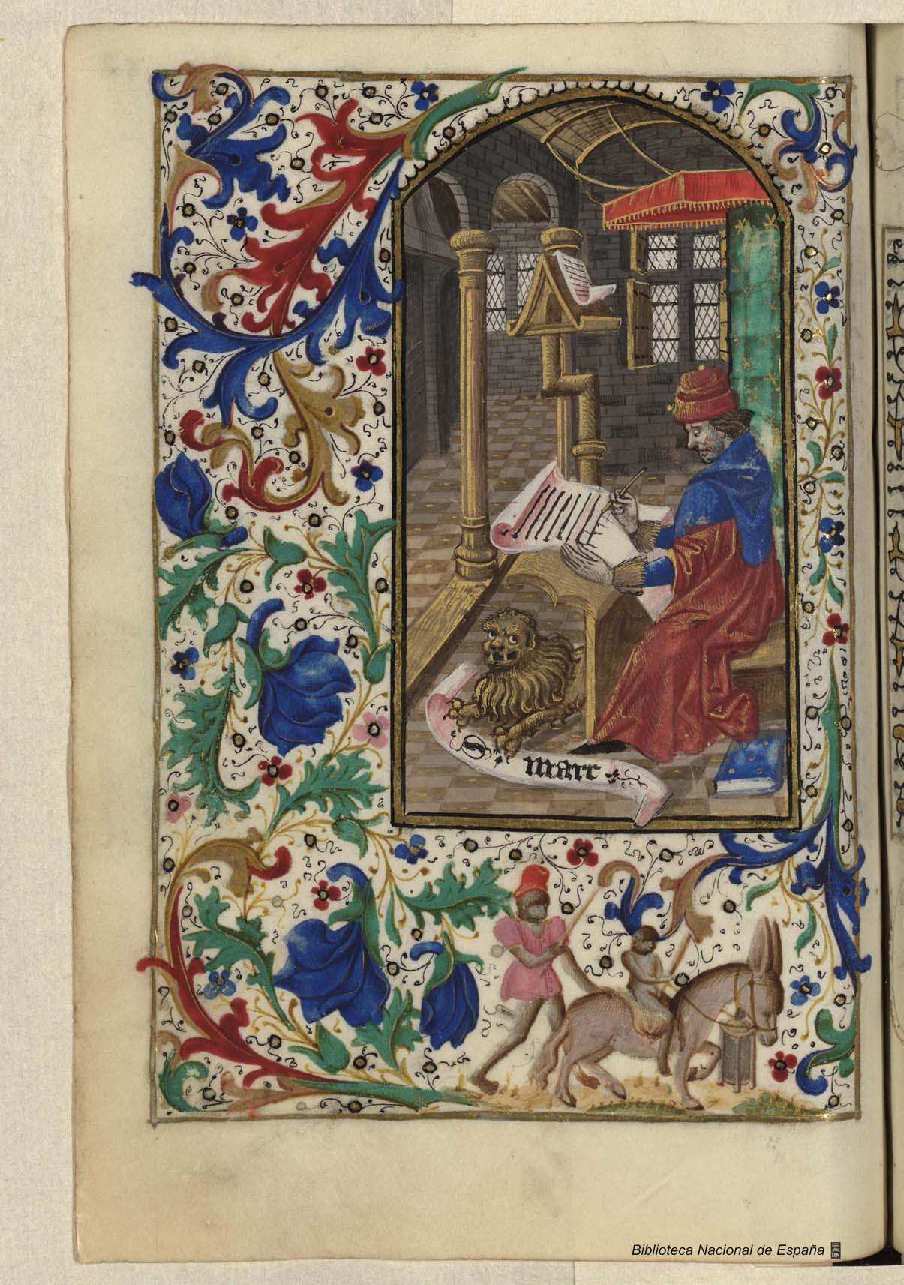 S. marc
Biblioteca Nacional de España